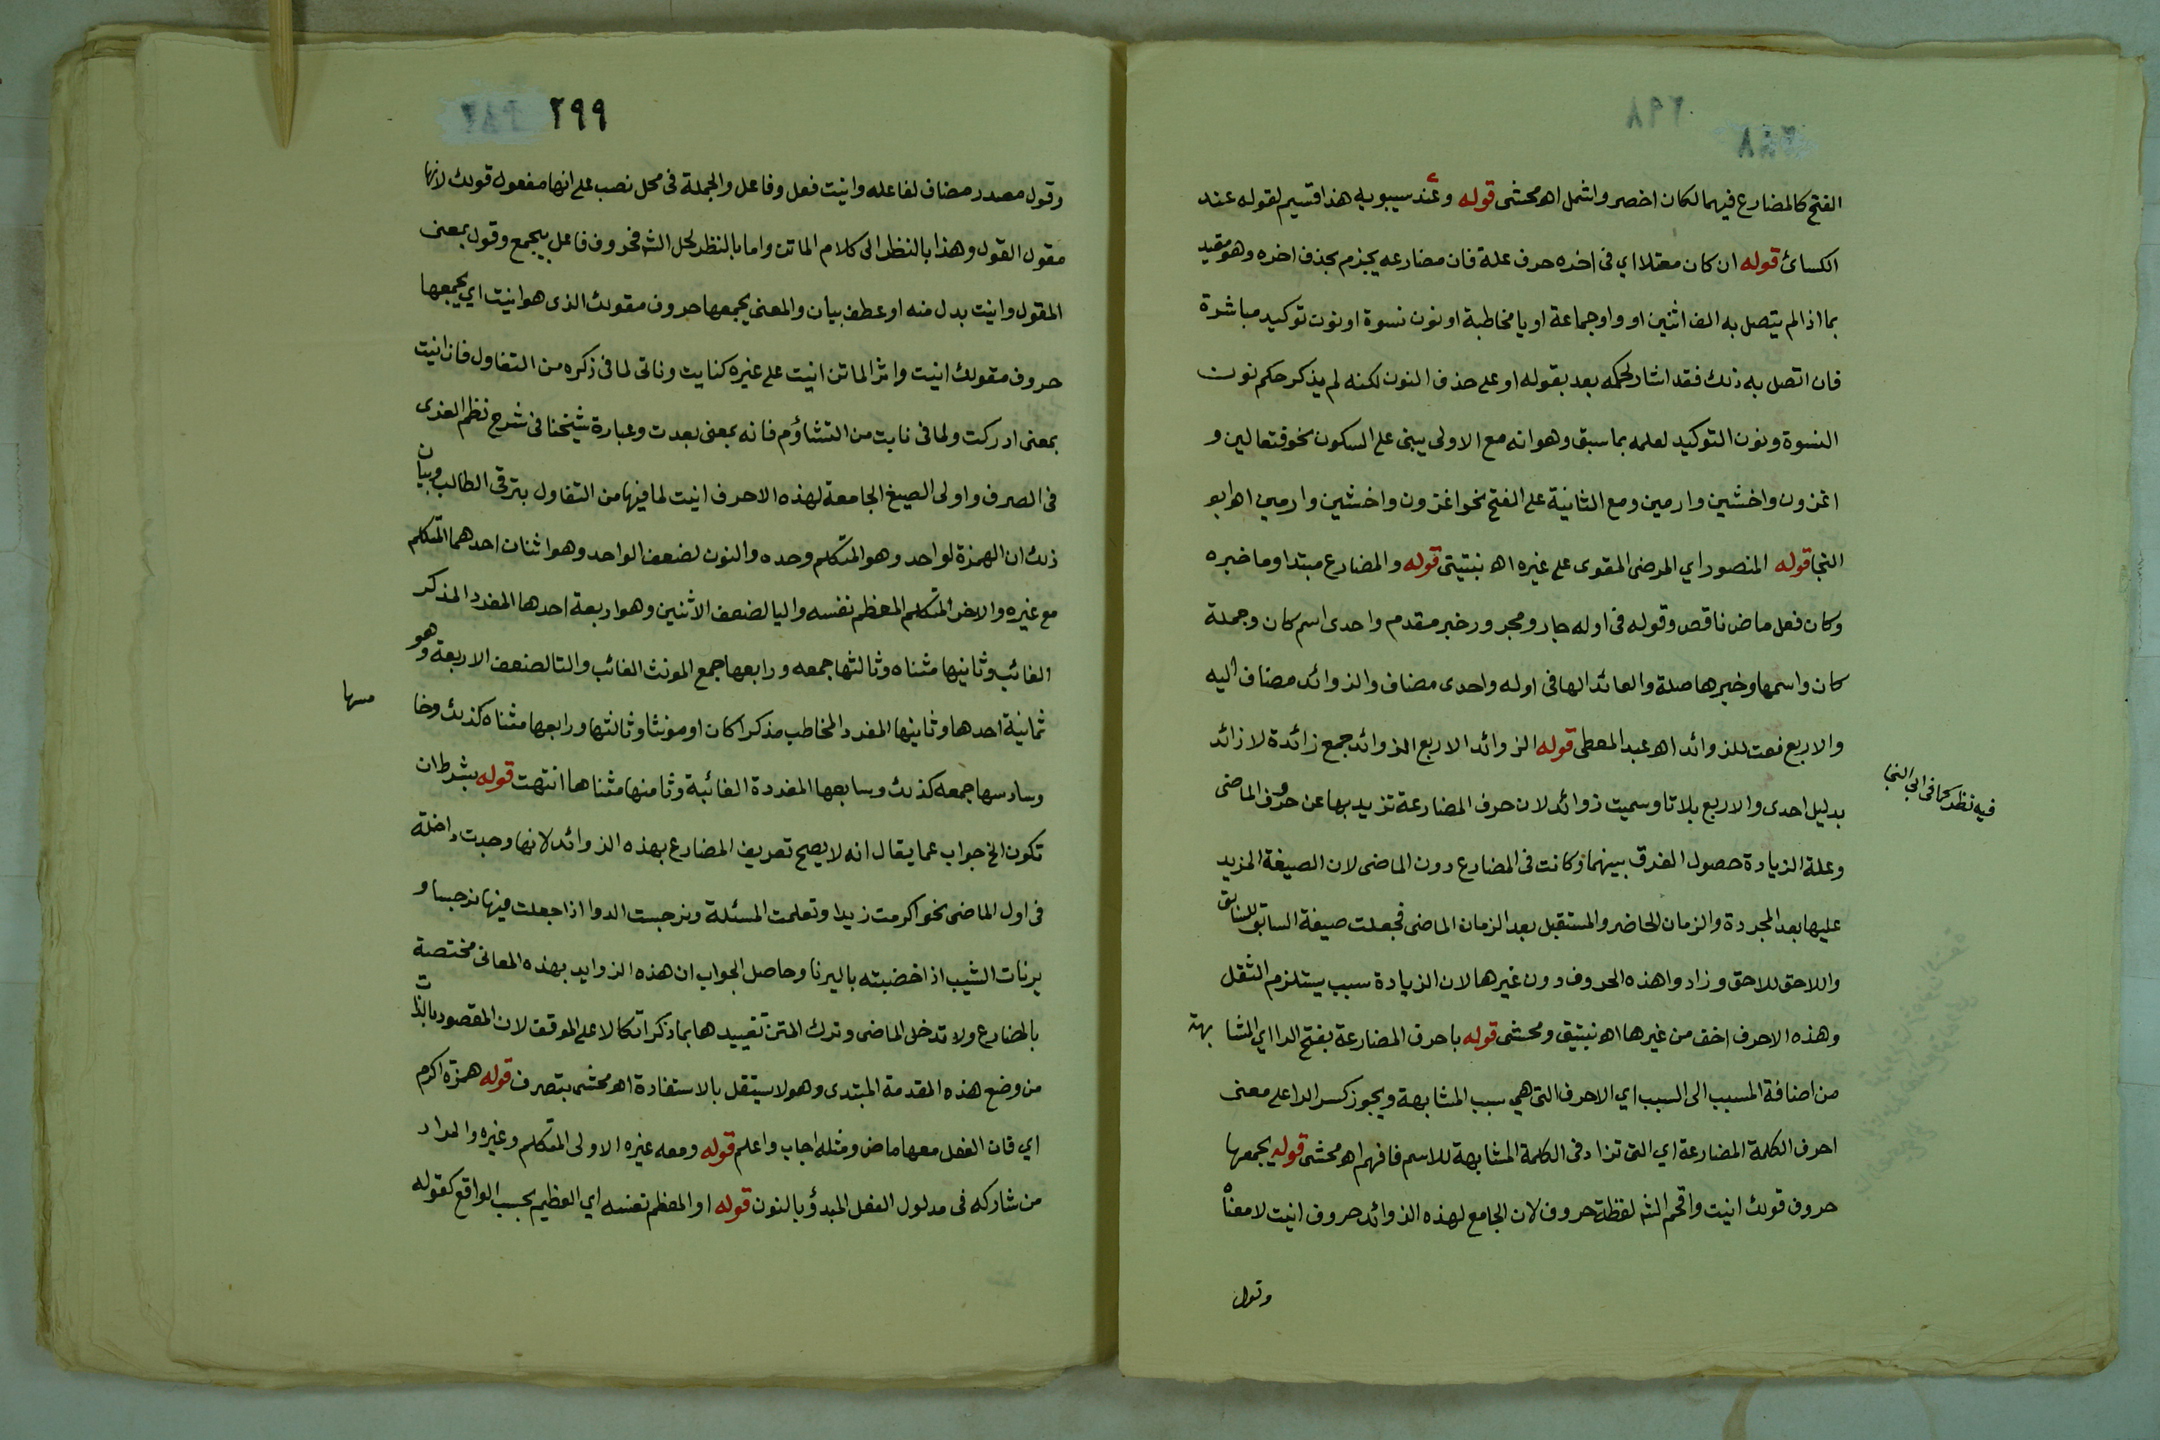 ٢٩٨
الفتح كالمضارع فيهما لكان اخصر واشمل اه محشى قوله وعند سيبويه هذا قسيم لقوله عند
الكسائ قوله ان كان معتلا اي فى اخره حرف علة فان مضارعه يجزم بحذف اخره وهو مقيد
بما اذا لم يتصل به الف اثنين او واو جماعة او يا مخاطبة او نون نسوة او نون توكيد مباشرة
فان اتصل به ذلك فقد اشار لحكمه بعد بقوله او على حذف النون لكنه لم يذكر حكم نون
النسوة ونون التوكيد لعلمه بما سبق وهو انه مع الاولى يبنى على السكون نحو فتعالين و
اغزون واخشين وارمين ومع الثانية على الفتح نحو اغزون واخشين وارمين اه ابو
النجا قوله المنصور اي المرضى المقوى على غيره اه نبتيتى قوله والمضارع مبتدا وما خبره
وكان فعل ماض ناقص وقوله فى اوله جار ومجرور خبر مقدم واحدى اسم كان وجملة
كان واسمها وخبرها صلة والعائد الها فى اوله واحدى مضاف والزوائد مضاف اليه
والاربع نعت للزوائد اه عبد المعطى قوله الزوائد الاربع الزوائد جمع زائدة لا زائد
بدليل احدى والاربع بلا تا وسميت زوائد لان حرف المضارعة تزيد بها عن حروف الماضى
فيه نظر كما فى ابى النجا
وعلة الزيادة حصول الفرق بينهما وكانت فى المضارع دون الماضى لان الصيغة المزيد
عليها بعد المجردة والزمان الحاضر والمستقبل بعد الزمان الماضى فجعلت صيغة السابق للسابق
واللاحق للاحق وزادوا هذه الحروف دون غيرها لان الزيادة سبب يستلزم الثقل
وهذه الاحرف اخف من غيرها اه نبتيتى ومحشى قوله باحرف المضارعة بفتح الرا اي المشابهة
من اضافة المسبب الى السبب اي الاحرف التى هي سبب المشابهة ويجوز كسر الرا على معنى
احرف الكلمة المضارعة اي التى تزاد فى الكلمة المشابهة للاسم فافهم اه محشى قوله يجمعها
حروف قولك انيت واقحم الشه لفظة حروف لان الجامع لهذه الزوائد حروف انيت لا معناه
وقول
٢٩٩
وقول مصدر مضاف لفاعله وانيت فعل وفاعل والجملة فى محل نصب على انها مفعول قولك لانها
مقول القول وهذا بالنظر الى كلام الماتن واما بالنظر لحل الشه فحروف فاعل بيجمع وقول بمعنى
المقول وانيت بدل منه او عطف بيان والمعنى يجمعها حروف مقولك الذى هو انيت اي يجمعها
حروف مقولك انيت واثر الماتن انيت على غيره كنايت وناتى لما فى ذكره من التفاول فان انيت
بمعنى ادركت ولما فى نايت من التشاؤم فانه بمعنى بعدت وعبارة شيخنا فى شرح نظم العزى
فى الصرف واولى الصيغ الجامعة لهذه الاحرف انيت لما فيها من التفاول بترقى الطالب وبيان
ذلك ان الهمزة لواحد وهو المتكلم وحده والنون لضعف الواحد وهو اثنان احدهما المتكلم
مع غيره والاخر المتكلم المعظم نفسه واليا لضعف الاثنين وهو اربعة احدها المفرد المذكر
الغائب وثانيها مثناه وثالثها جمعه ورابعها جمع المونث الغائب والتا لضعف الاربعة وهو
ثمانية احدها وثانيها المفرد المخاطب مذكرا كان او مونثا وثالثها ورابعها مثناه كذلك وخا
مسها
وسادسها جمعه كذلك وسابعها المفردة الغائبة وثامنها مثناها انتهت قوله بشرط ان
تكون الخ جواب عما يقال انه لا يصح تعريف المضارع بهذه الزوائد لانها وجدت داخلة
فى اول الماضى نحو اكرمت زيدا وتعلمت المسئلة ونرجست الدوا اذا جعلت فيها نرجسا و
يرنات الشيب اذا خضبته باليرنا وحاصل الجواب ان هذه الزوايد بهذه المعانى مختصة
بالمضارع ولا تدخل الماضى وترك المتن تقييدها بما ذكر اتكالا على الموقف لان المقصود بالذات
من وضع هذه المقدمة المبتدى وهو لا يستقل بالاستفادة اه محشى بتصرف قوله همزة اكرم
اي فان الفعل معها ماض ومثله اجاب واعلم قوله ومعه غيره الاولى المتكلم وغيره والمراد
من شاركه فى مدلول الفعل المبدؤ بالنون قوله او المعظم نفسه اي العظيم بحسب الواقع كقوله